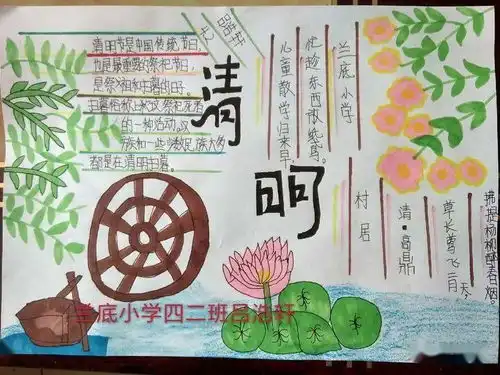 清明节是中国传统节日,
也是最重要的祭祀节日,
是祭祖和扫墓的日。
扫墓俗称上坟,祭祀死者
的一种活动。汉
族和一些少数民族大多
都是在清明扫墓。
清
明
兰底小学
忙趁东西放纸鸢。
儿童散学归来早,
村居
清·高鼎
草长莺飞二月天,
拂堤杨柳醉春烟。
兰底小学四二班吕浩轩